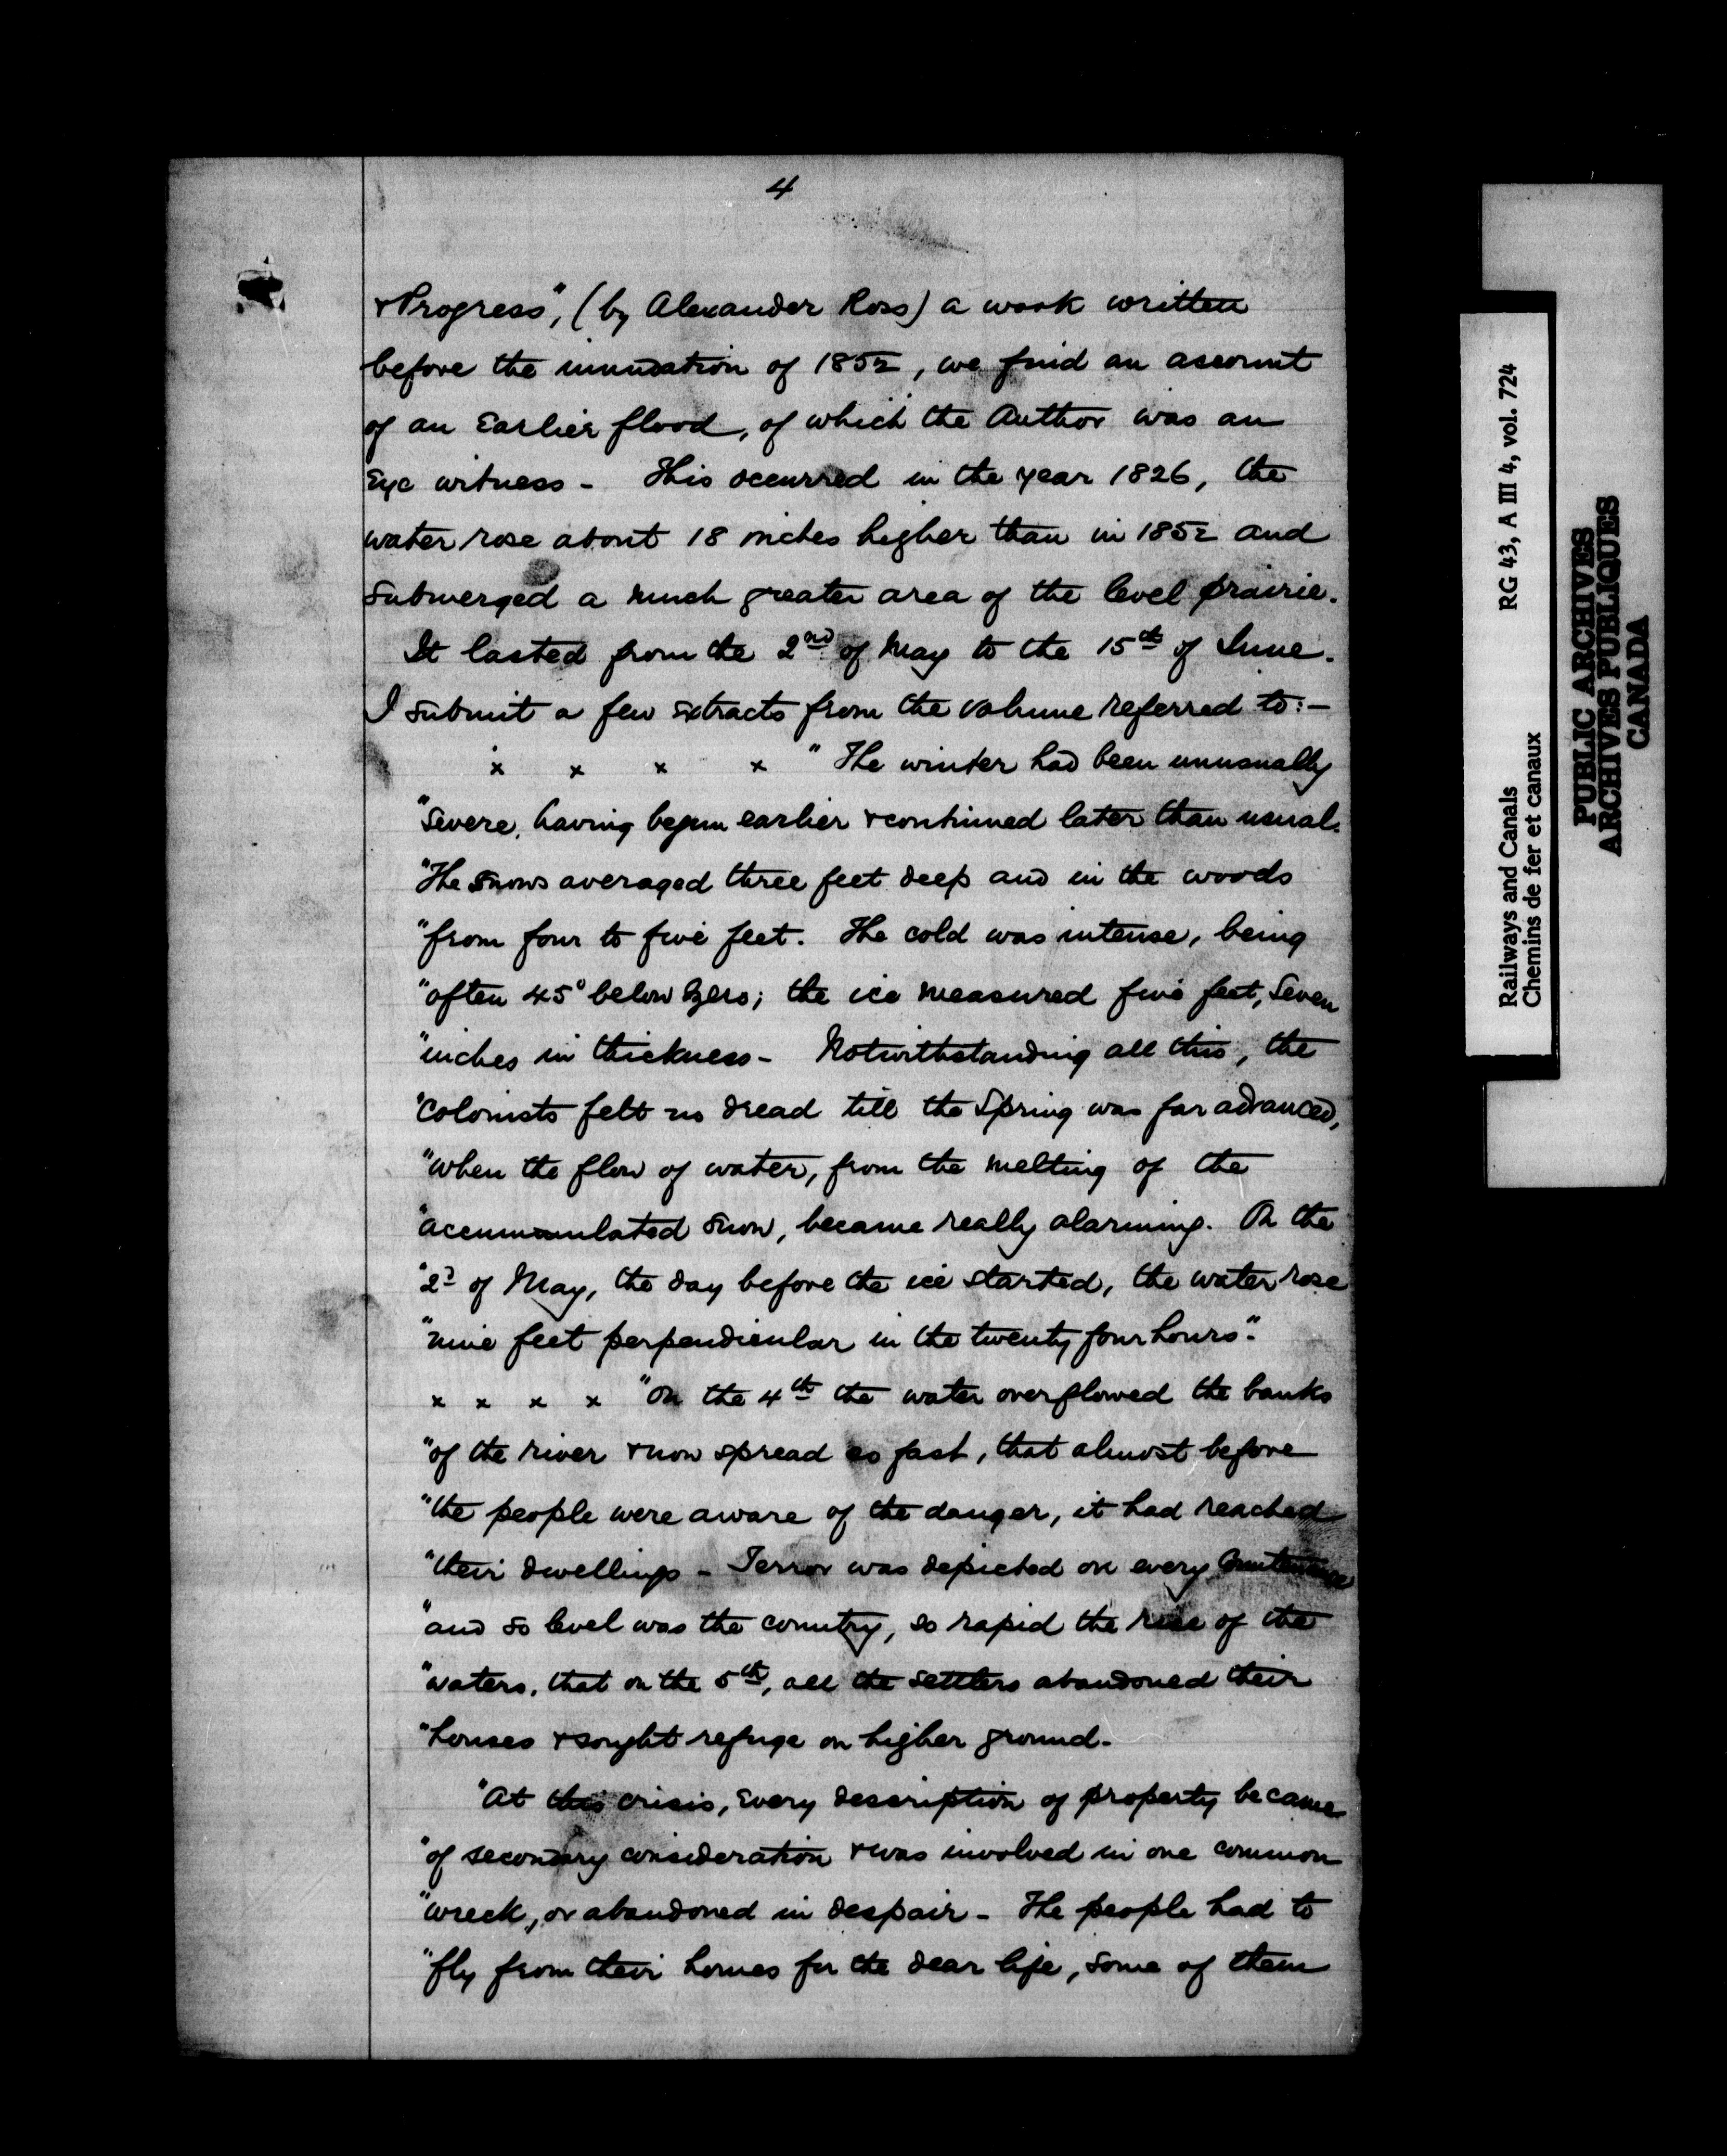 4
& Progress", (by Alexander Ross) a work written
before the inundation of 1852, we find an account
of an Earlier flood, of which the Author was an
Eye witness - This occurred in the year 1826, the
water rose about 18 inches higher than in 1852 and
submerged a much greater area of the level prairie.
It lasted from the 2nd of May to the 15th of June.
I submit a few Extracts from the volume referred to:-
x x x x "The winter had been unusually
"severe, having begun earlier & continued later than usual.
"The snows averaged three feet deep and in the woods
"from four to five feet. The cold was intense, being
"often 45° below Zero; the ice measured five feet, seven
"inches in thickness - Notwithstanding all this, the
"Colonists felt no dread till the Spring was far advanced,
"when the flow of water, from the melting of the
"accummulated snow, became really alarming. On the
"2d of May, the day before the ice started, the water rose
"nine feet perpendicular in the twenty four hours".
x x x x "On the 4th the water overflowed the banks
"of the river & now spread so fast, that almost before
"the people were aware of the danger, it had reached
"their dwellings - Terror was depicted on every Countenance
"and so level was the country, so rapid the rise of the
"waters, that on the 5th, all the settlers abandoned their
"houses & sought refuge on higher ground.
"At this crisis, Every description of property became
"of secondary consideration & was involved in one common
"wreck, or abandoned in despair - The people had to
"fly from their homes for the dear life, some of them
Railways and Canals RG 43, A III 4, vol. 724
Chemins de fer et canaux
PUBLIC ARCHIVES
ARCHIVES PUBLIQUES
CANADA